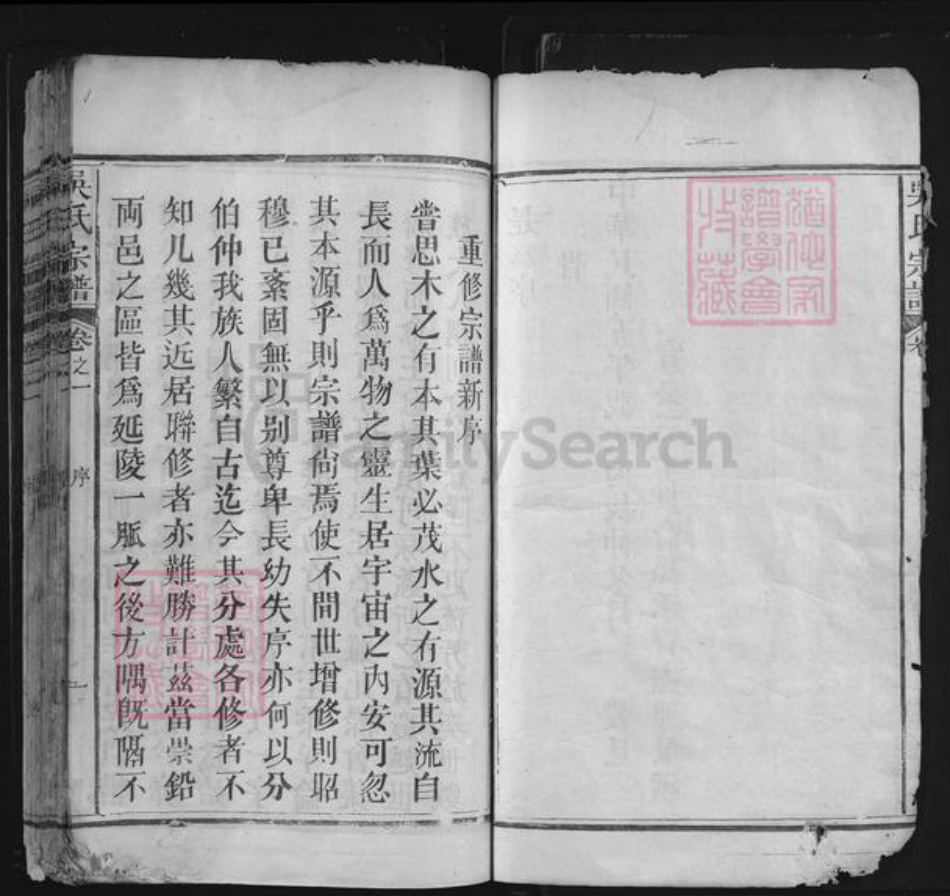 吳氏宗譜
重修宗譜新序
嘗思木之有本其葉必茂水之有源其流自
長而人爲萬物之靈生居宇宙之內安可忽
其本源乎則宗譜尙焉使不間世增修則昭
穆已紊固無以别尊卑長幼失序亦何以分
伯仲我族人繁自古迄今其分處各修者不
知几幾其近居聯修者亦難勝計茲當崇鉛
両邑之區皆爲延陵一脈之後方隅旣隔不
吳氏宗譜 卷之一 序 一
FamilySearch